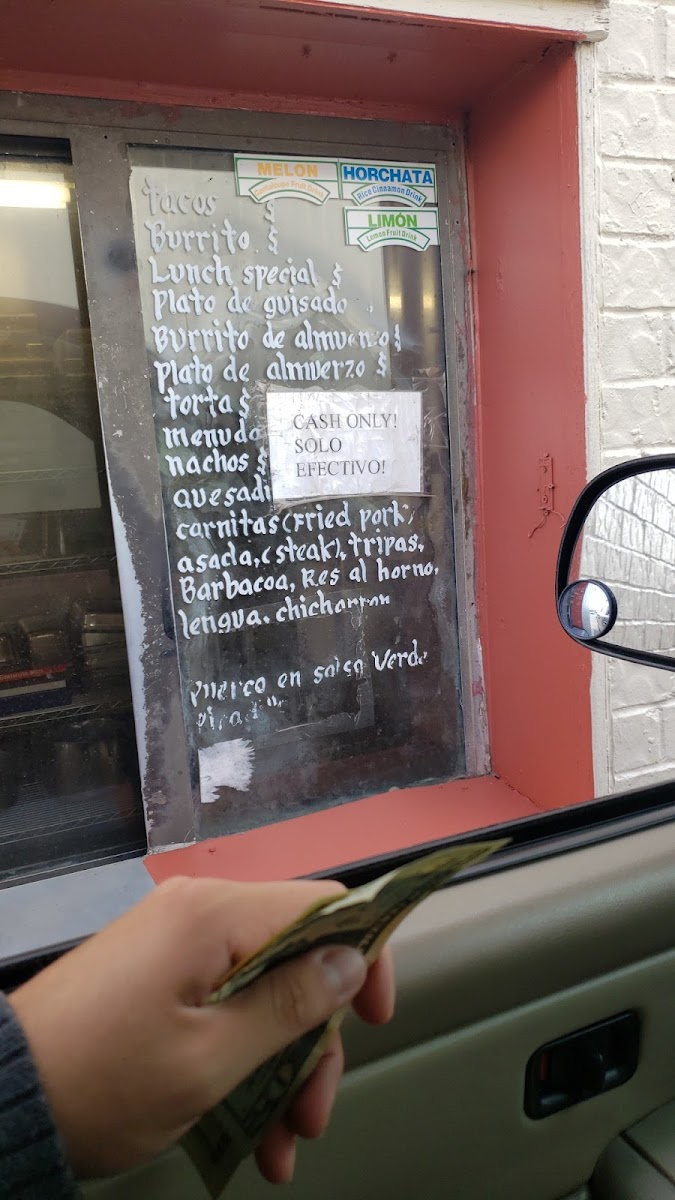 MELON
Cantaloupe Fruit Drink
HORCHATA
Rice Cinnamon Drink
LIMÓN
Lemon Fruit Drink
tacos $
Burrito $
Lunch special $
Plato de guisado
Burrito de almuerzo $
Plato de almuerzo $
torta $
menudo
nachos $
CASH ONLY!
SOLO
EFECTIVO!
carnitas (Fried pork)
asada, (steak), tripas,
Barbacoa, Res al horno,
lengua. chicharron
puerco en salsa verde